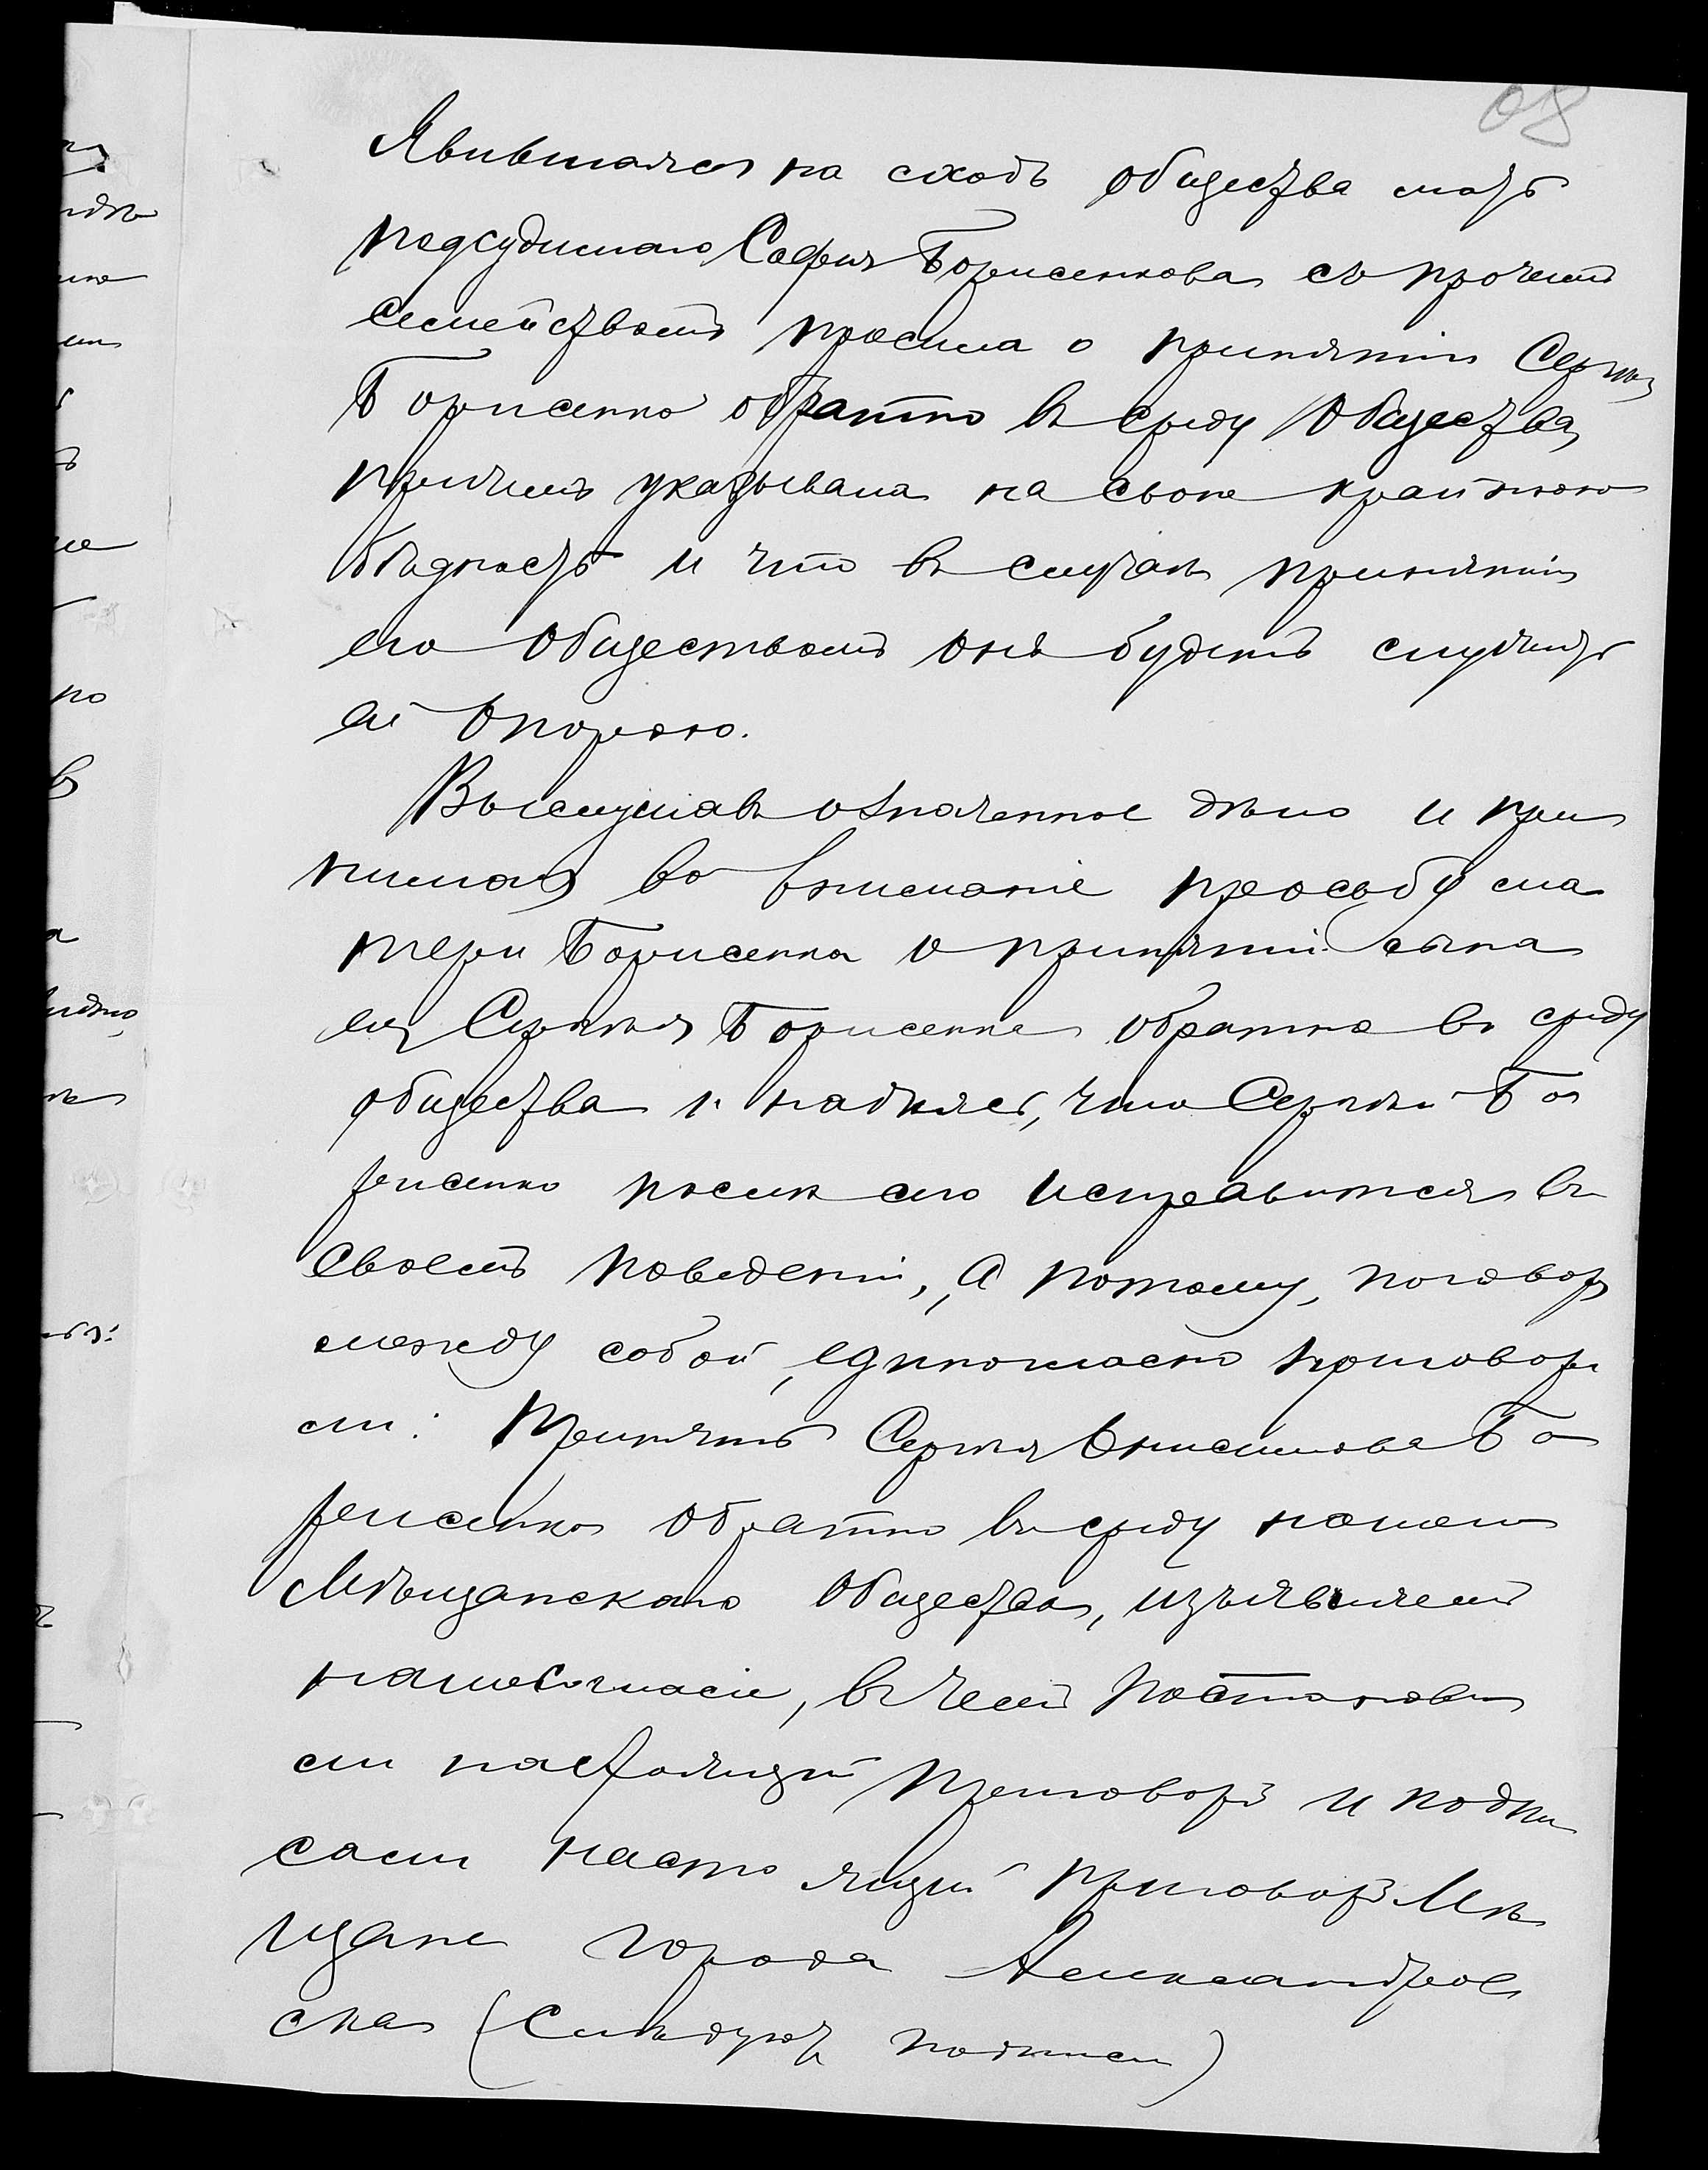 08
Явившаяся на сходъ общества мать
подсудимаго Софья Борисенкова съ прочимъ
семействомъ просила о принятіи Сергѣя
Борисенко обратно въ среду Общества,
причемъ указывала на свою крайнюю
бѣдность и что въ случаѣ принятія
его Обществомъ онъ будетъ служить
ей опорою.
Выслушавъ означенное дѣло и при
нимая во вниманіе просьбу ма
тери Борисенко о принятіи сына
ея Сергѣя Борисенко обратно въ среду
общества и надѣясь, что Сергѣй Бо
рисенко послѣ сего исправится въ
своемъ поведеніи, а потому, поговоря
между собой, единогласно приговори
ли: Принять Сергѣя Онисимова Бо
рисенко обратно въ среду нашего
Мѣщанскаго Общества, изъявляемъ
наше согласіе, въ чемъ постанови
ли настоящій приговоръ и подпи
сали настоящій приговоръ Мѣ
щане города Александров
ска (Слѣдуютъ подписи)